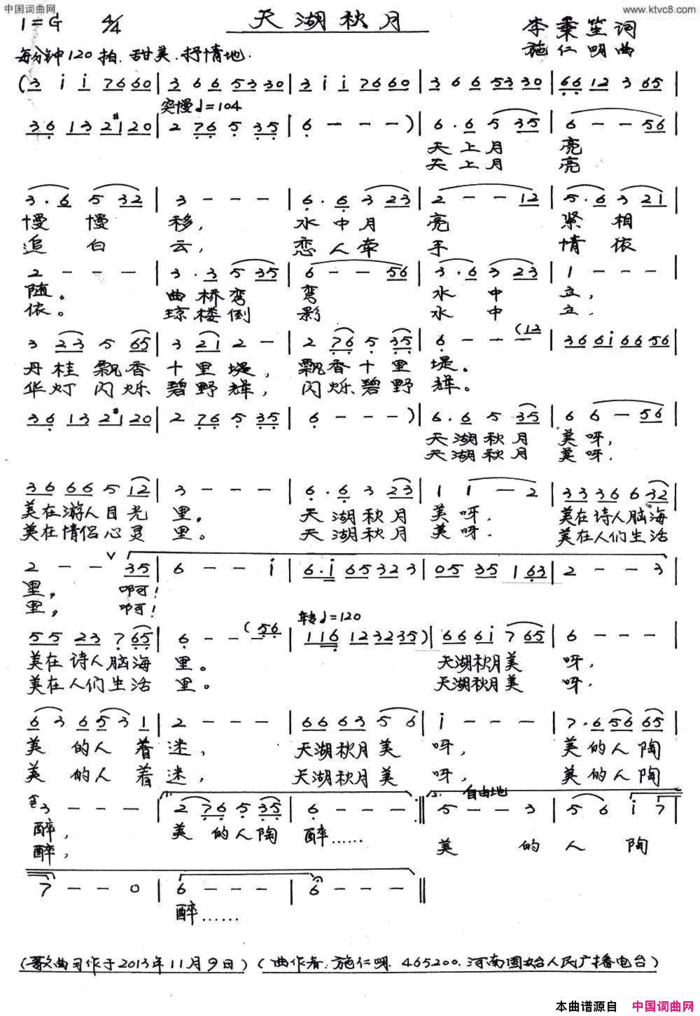 中国词曲网
www.ktvc8.com
1=G 4/4 天湖秋月 李秉笙词
每分钟120拍. 甜美.抒情地. 施仁明曲
(3 i i 7660 | 366 5330 | 3 i i 7660 | 366 5330 | 6612 3 65 |
突慢♩=104
36 13 2#120 | 2 76 5 35 | 6 - - - ) | 6.6 5 35 | 6 - - 56 |
天上月 亮
天上月 亮
3.6 5 32 | 3 - - - | 6.6 3 23 | 2 - - 12 | 5.6 3 21 |
慢慢 移, 水中月 亮 紧相
追白 云, 恋人牵 手 情依
2 - - - | 3.3 5 35 | 6 - - 56 | 3.6 3 23 | 1 - - - |
随。 曲桥弯 弯 水中 立,
依。 琼楼倒 影 水中 立.
3 23 5 65 | 3 21 2 - | 2 76 5 35 | 6 - - (12 | 366i 6656 |
丹桂飘香 十里堤, 飘香十里 堤。
华灯闪烁 碧野辉, 闪烁碧野 辉。
36 13 2#120 | 2 76 5 35 | 6 - - - ) | 6.6 5 35 | 6 6 - 56 |
天湖秋月 美呀,
天湖秋月 美呀.
3666 5 12 | 3 - - - | 6.6 3 23 | 1 1 - 2 | 3336 6 32 |
美在游人目光 里。 天湖秋月 美呀. 美在诗人脑海
美在情侣心灵 里。 天湖秋月 美呀. 美在人们生活
2 - - 35 | 6 - - i | 6.i 65323 | 05 35 1 63 | 2 - - 3 |
里, 啊!
里, 啊!
转♩=120
55 23 7 65 | 6 - - (56 | 116 123235) | 666i 7 65 | 6 - - - |
美在诗人脑海 里。 天湖秋月美 呀,
美在人们生活 里。 天湖秋月美 呀.
6 3 65 3 1 | 2 - - - | 6663 5 6 | i - - - | 7.6 56 65 |
美的人着 迷, 天湖秋月美 呀, 美的人陶
美的人着 迷, 天湖秋月美 呀, 美的人陶
2. 自由地
3 - - - | 2 76 5 35 | 6 - - - :‖ 5 - - 3 | 5 6 i 7 |
醉, 美的人陶 醉…… 美 的人陶
醉,
7 - - 0 | 6 - - - | 6 - - - ‖
醉……
(歌曲习作于2013年11月9日) (曲作者:施仁明. 465200.河南固始人民广播电台)
本曲谱源自 中国词曲网